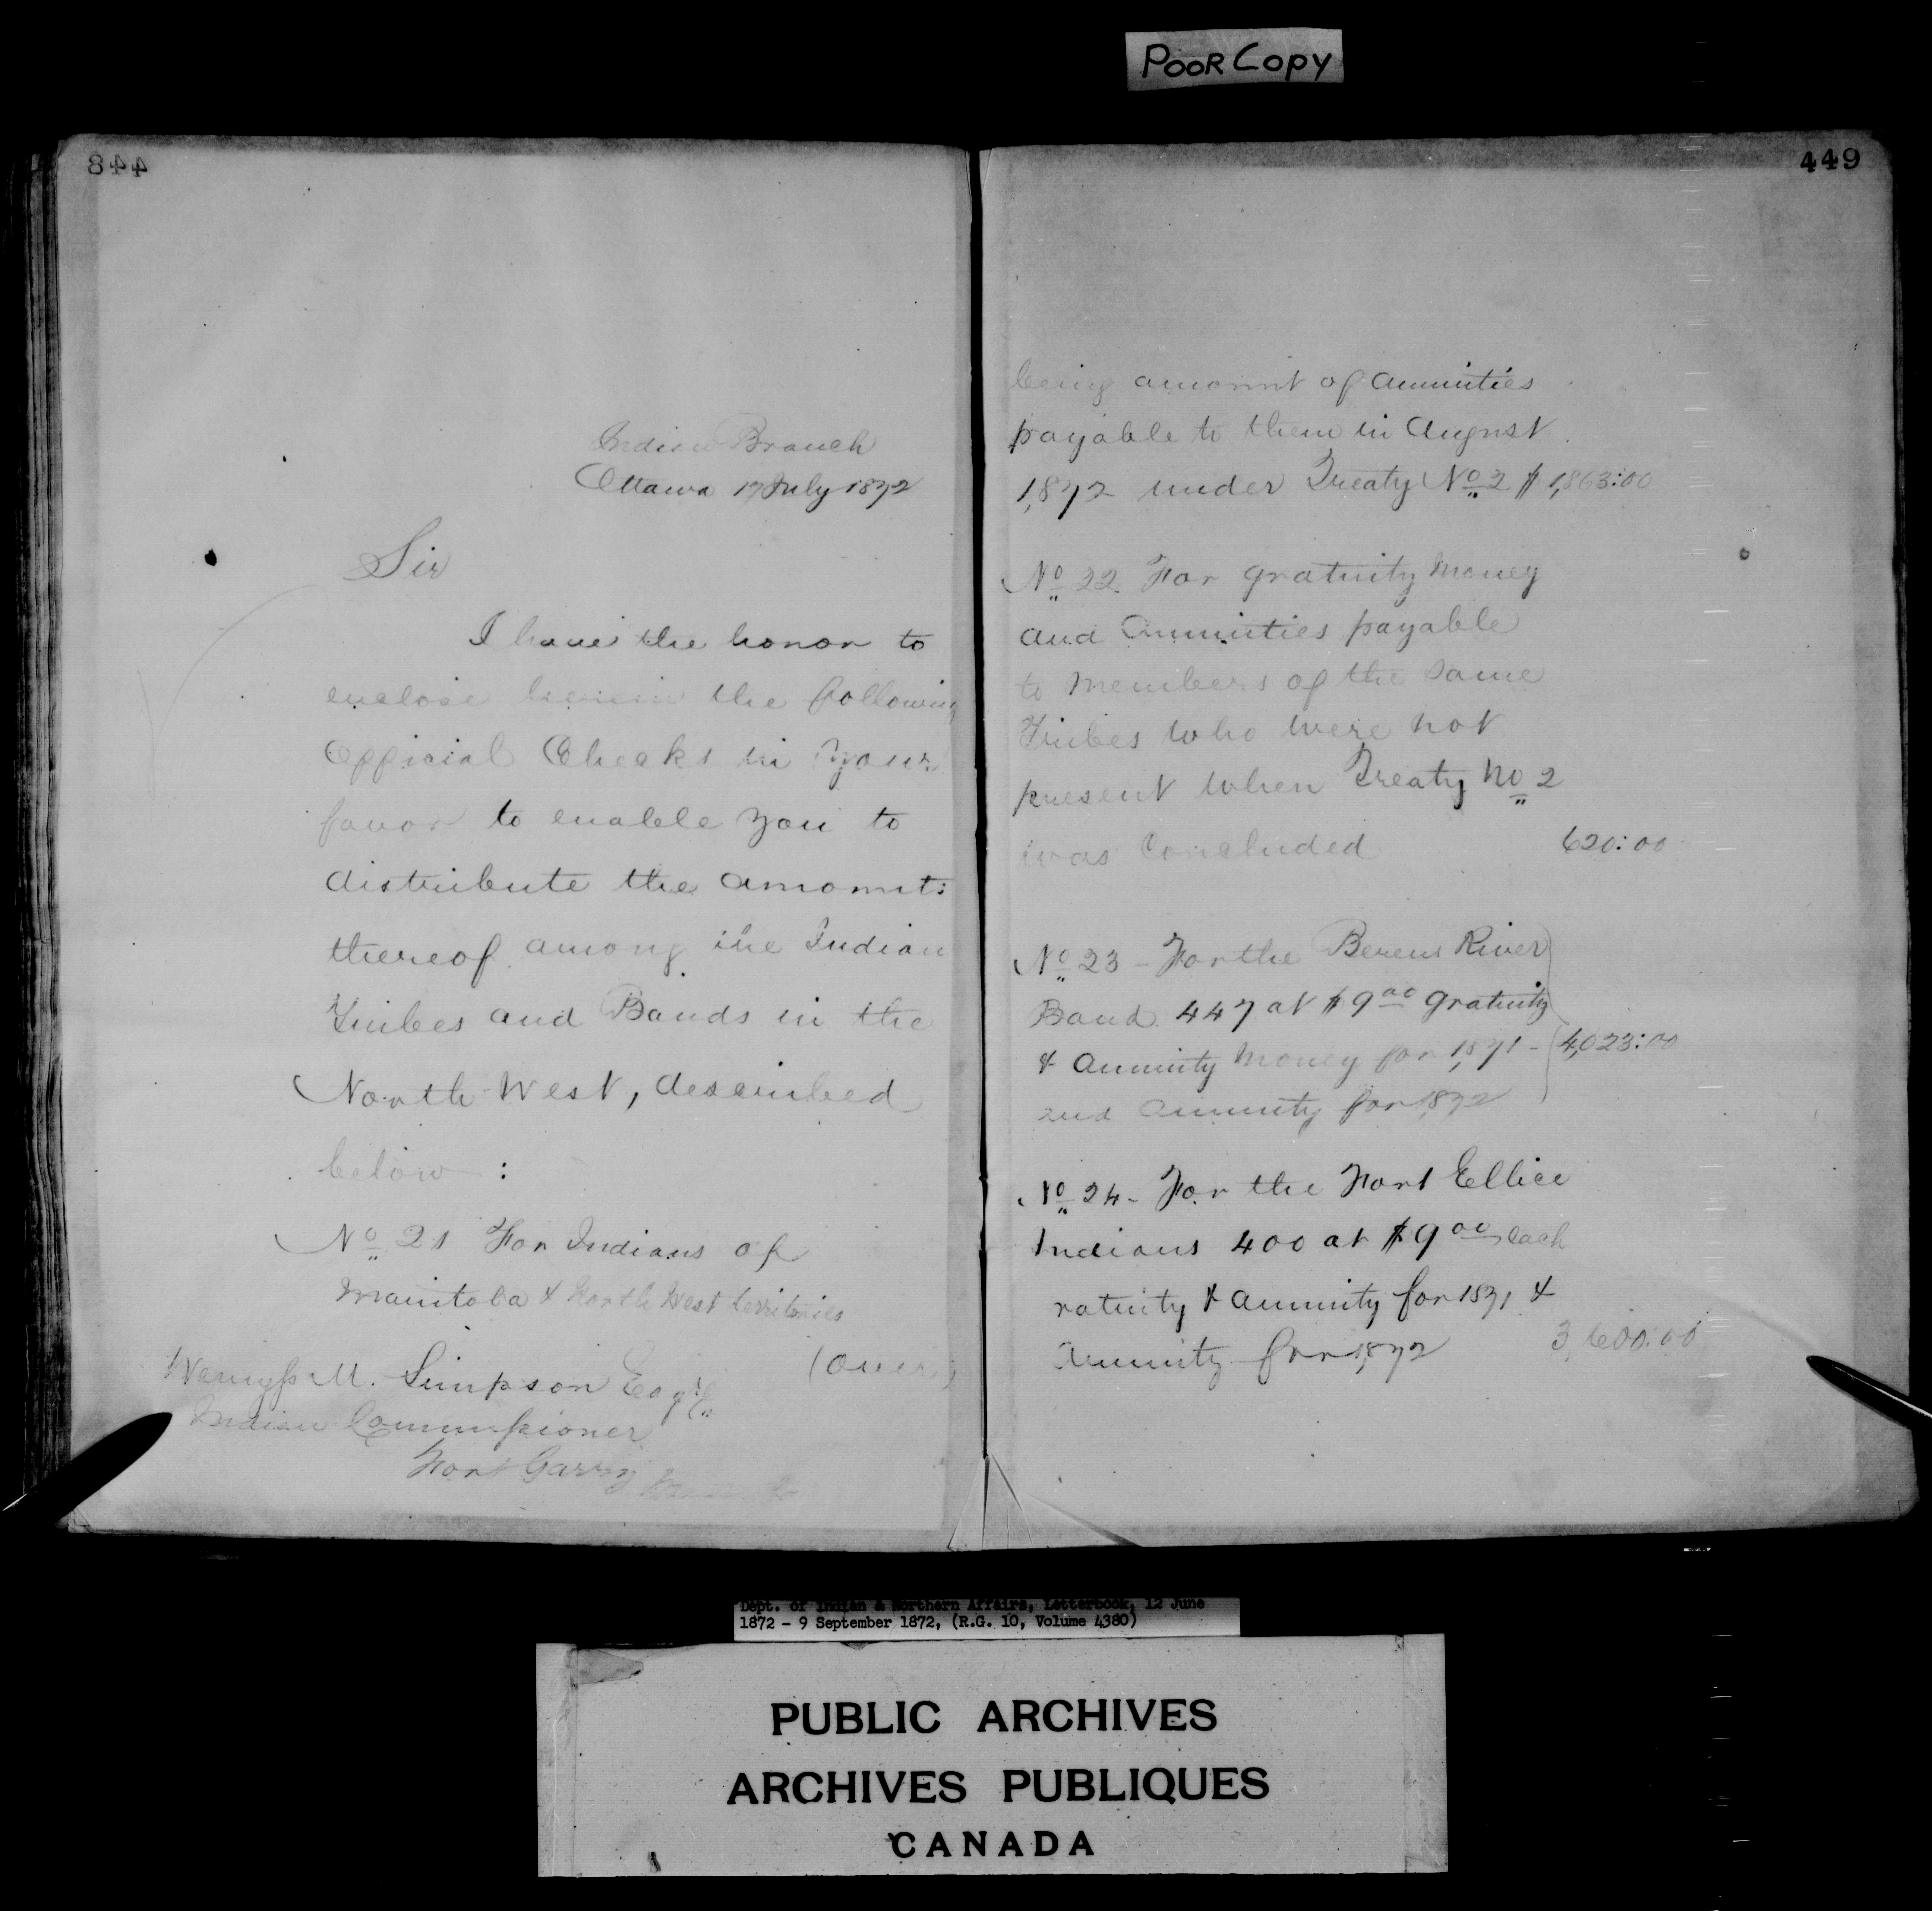 POOR COPY
448
Indian Branch
Ottawa 17 July 1872
Sir
I have the honor to
enclose herein the following
Official Checks in your
favor to enable you to
distribute the amounts
thereof among the Indian
Tribes and Bands in the
North West, described
below :
No 21 For Indians of
Manitoba & North West territories
(over)
Wemyss M. Simpson Esqre
Indian Commissioner
Fort Garry
449
being amount of annuities
payable to them in August
1,872 under Treaty No 2 $1,863:00
No 22. For gratuity money
and Annuities payable
to members of the same
Tribes who were not
present when Treaty No 2
was concluded 620:00
No 23 - For the Berens River
Band 447 at $9 00 gratuity
& annuity money for 1,871 - 4,023:00
and annuity for 1872
No 24 - For the Fort Ellice
Indians 400 at $9 00 each
ratuity & annuity for 1871 &
Annuity for 1,872 3,600:00
Dept. of Indian & Northern Affairs, Letterbook, 12 June
1872 - 9 September 1872, (R.G. 10, Volume 4380)
PUBLIC ARCHIVES
ARCHIVES PUBLIQUES
CANADA